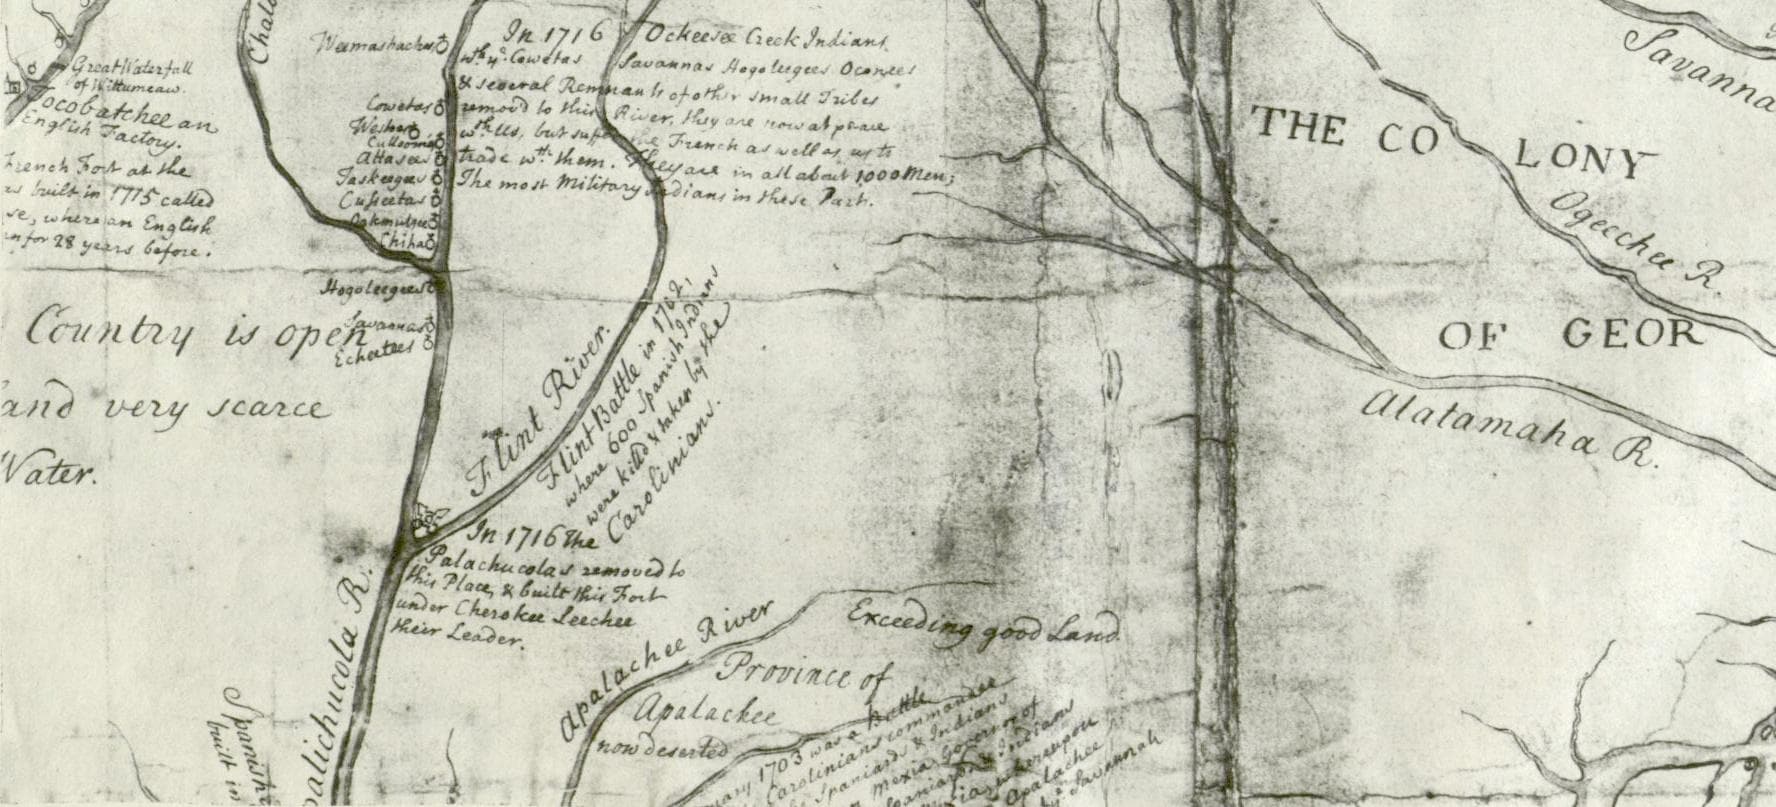 Chala
Weemashaches
Great Waterfall
of Wittumcaw.
Tocobatchee an
English Factory.
French Fort at the
as built in 1715 called
se, where an English
an for 28 years before.
Cowetas
Westoes
Culloomie
Attasees
Taskeegees
Cussetas
Oakmulgee
Chiha
Hogoleegees
Savannas
Echeetees
In 1716
wth. ye. Cowetas
Ockeesee Creek Indians
Savannas Hogoleegees Oconees
& several Remnants of other small Tribes
remov'd to this River, they are now at peace
wth. Us, but suffer the French as well as us to
trade wth. them. They are in all about 1000 Men;
The most Military Indians in these Part.
Country is open
and very scarce
Water.
Flint River.
Flint Battle in 1702,
where 600 Spanish Indians
were killd & taken by the
Carolinians.
In 1716 the
Palachucolas removed to
this Place, & built this Fort
under Cherokee Leechee
their Leader.
palichucola R.
Spanish
built in
Apalachee River
Exceeding good Land
Province of
Apalachee
now deserted
uary 1703 was a Battle
Carolinians commandee
Spaniards & Indians
Mexia Governor of
Spaniards & Indians
whereupon
Apalachee
Savannah
Savanna
THE COLONY
OF GEOR
Ogeechee R.
Alatamaha R.